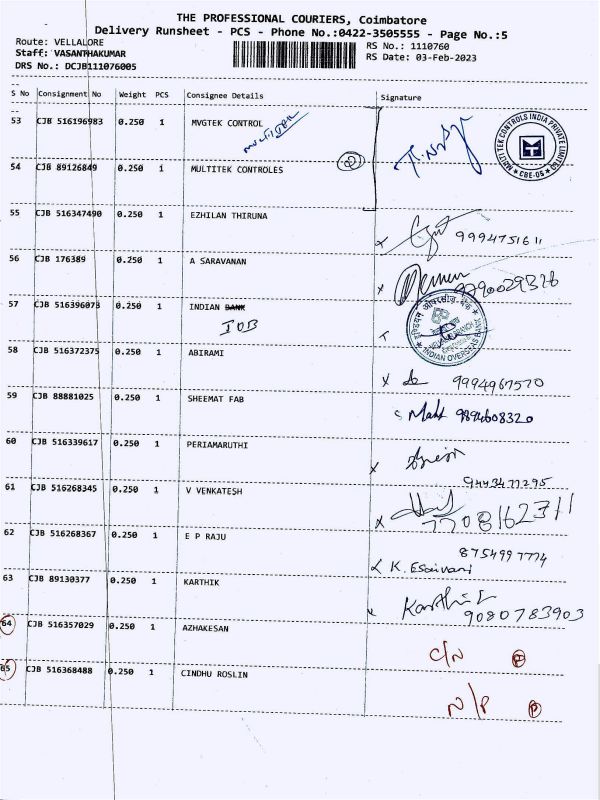 THE PROFESSIONAL COURIERS, Coimbatore
Delivery Runsheet - PCS - Phone No.:0422-3505555 - Page No.:5
Route: VELLALORE RS No.: 1110760
Staff: VASANTHAKUMAR RS Date: 03-Feb-2023
DRS No.: DCJB111076005
S No Consignment No Weight PCS Consignee Details Signature
53 CJB 516196983 0.250 1 MVGTEK CONTROL
MULTITEK
MULTI TEK CONTROLS INDIA PRIVATE LIMITED
CBE-05
54 CJB 89126849 0.250 1 MULTITEK CONTROLES
2
55 CJB 516347490 0.250 1 EZHILAN THIRUNA
9994751611
56 CJB 176389 0.250 1 A SARAVANAN
57 CJB 516396073 0.250 1 INDIAN BANK
IOB
INDIAN OVERSEAS BANK
58 CJB 516372375 0.250 1 ABIRAMI
x 9994967570
59 CJB 88881025 0.250 1 SHEEMAT FAB
9894608320
60 CJB 516339617 0.250 1 PERIAMARUTHI
x
9443477295
61 CJB 516268345 0.250 1 V VENKATESH
x 7708162311
62 CJB 516268367 0.250 1 E P RAJU
8754997774
K. Esaivani
63 CJB 89130377 0.250 1 KARTHIK
Karthik
9080783903
64 CJB 516357029 0.250 1 AZHAKESAN
C/N
65 CJB 516368488 0.250 1 CINDHU ROSLIN
N/P